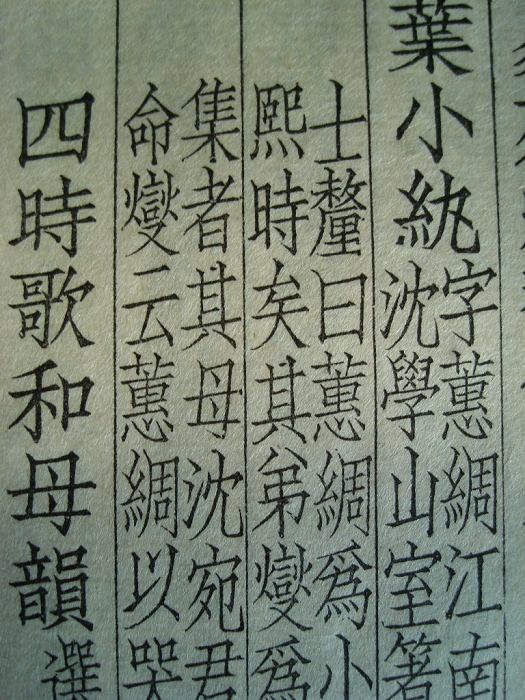 葉小紈
字蕙綢江南
沈學山室著
士釐曰蕙綢爲小
熙時矣其弟燮爲
集者其母沈宛君
命燮云蕙綢以哭
四時歌和母韻
選